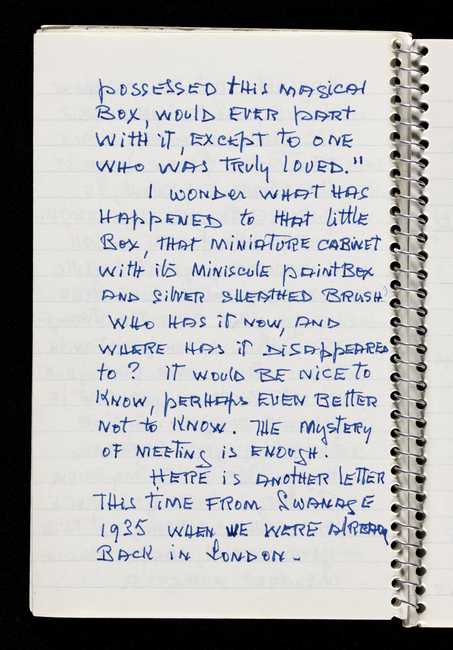 POSSESSED THIS MAGICAL
BOX, WOULD EVER PART
WITH IT, EXCEPT TO ONE
WHO WAS TRULY LOVED."
I WONDER WHAT HAS
HAPPENED TO THAT LITTLE
BOX, THAT MINIATURE CABINET
WITH ITS MINISCULE PAINTBOX
AND SILVER SHEATHED BRUSH?
WHO HAS IT NOW, AND
WHERE HAS IT DISAPPEARED
TO? IT WOULD BE NICE TO
KNOW, PERHAPS EVEN BETTER
NOT TO KNOW. THE MYSTERY
OF MEETING IS ENOUGH.
HERE IS ANOTHER LETTER
THIS TIME FROM SWANAGE
1935 WHEN WE WERE ALREADY
BACK IN LONDON.